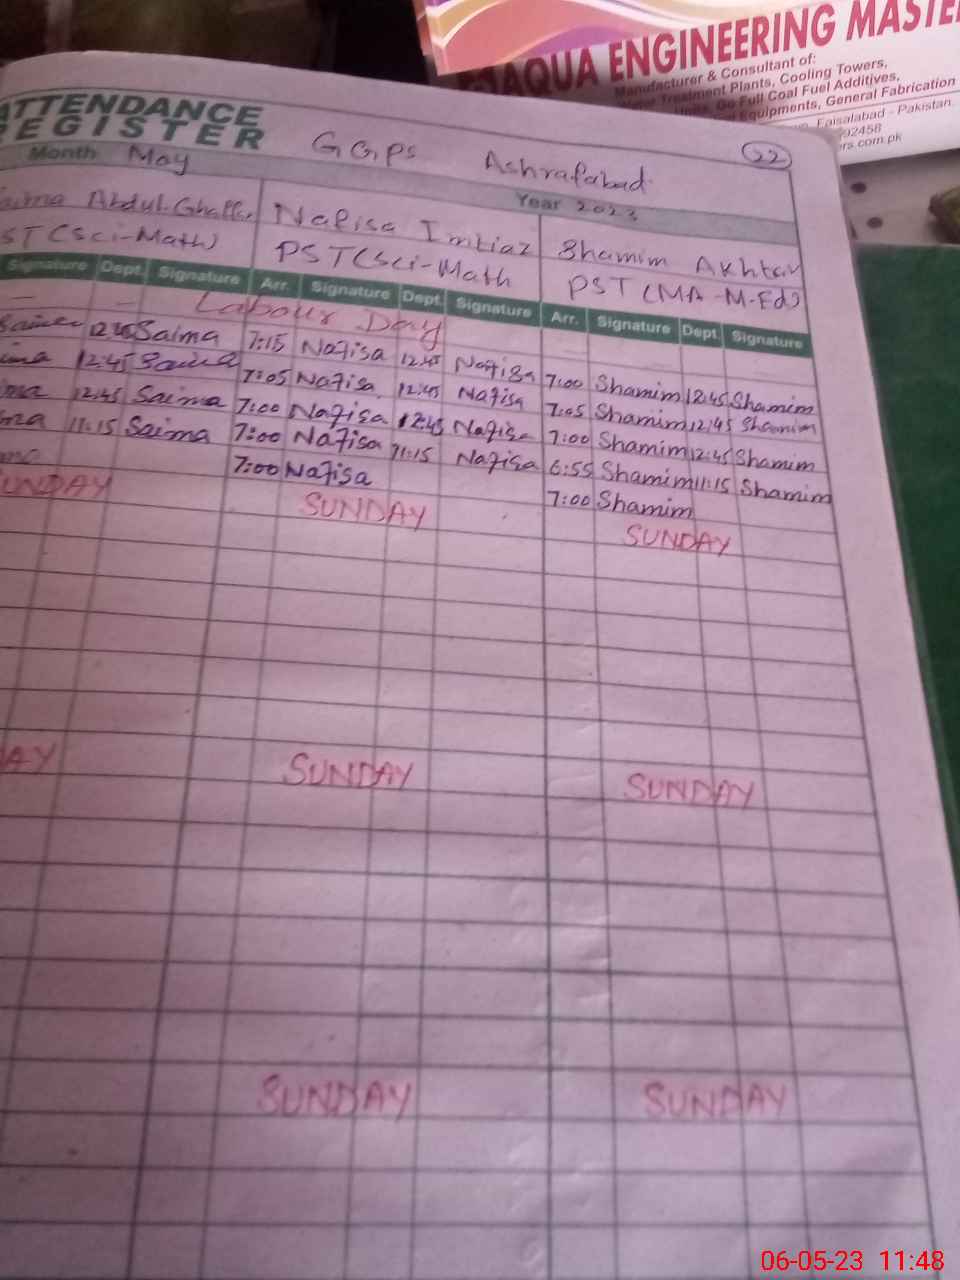 AQUA ENGINEERING MASTE
Manufacturer & Consultant of:
Treatment Plants, Cooling Towers,
Go Full Coal Fuel Additives,
Equipments, General Fabrication
Faisalabad - Pakistan.
92458
rs.com.pk
ATTENDANCE
REGISTER
GGPS Ashrafabad 22
Month May Year 2023
Abdul Ghaffar Nafisa Imtiaz Shamim Akhtar
PST (Sci-Math) PST (Sci-Math PST (MA-M-Ed)
Signature Dept. Signature Arr. Signature Dept. Signature Arr. Signature Dept. Signature
Labour Day
12:45 Saima 7:15 Nafisa 12:45 Nafisa 7:00 Shamim 12:45 Shamim
12:45 Saima 7:05 Nafisa 12:45 Nafisa 7:05 Shamim 12:45 Shamim
12:45 Saima 7:00 Nafisa 12:45 Nafisa 7:00 Shamim 12:45 Shamim
11:15 Saima 7:00 Nafisa 11:15 Nafisa 6:55 Shamim 11:15 Shamim
7:00 Nafisa 7:00 Shamim
SUNDAY SUNDAY SUNDAY
DAY SUNDAY SUNDAY
SUNDAY SUNDAY
06-05-23 11:48